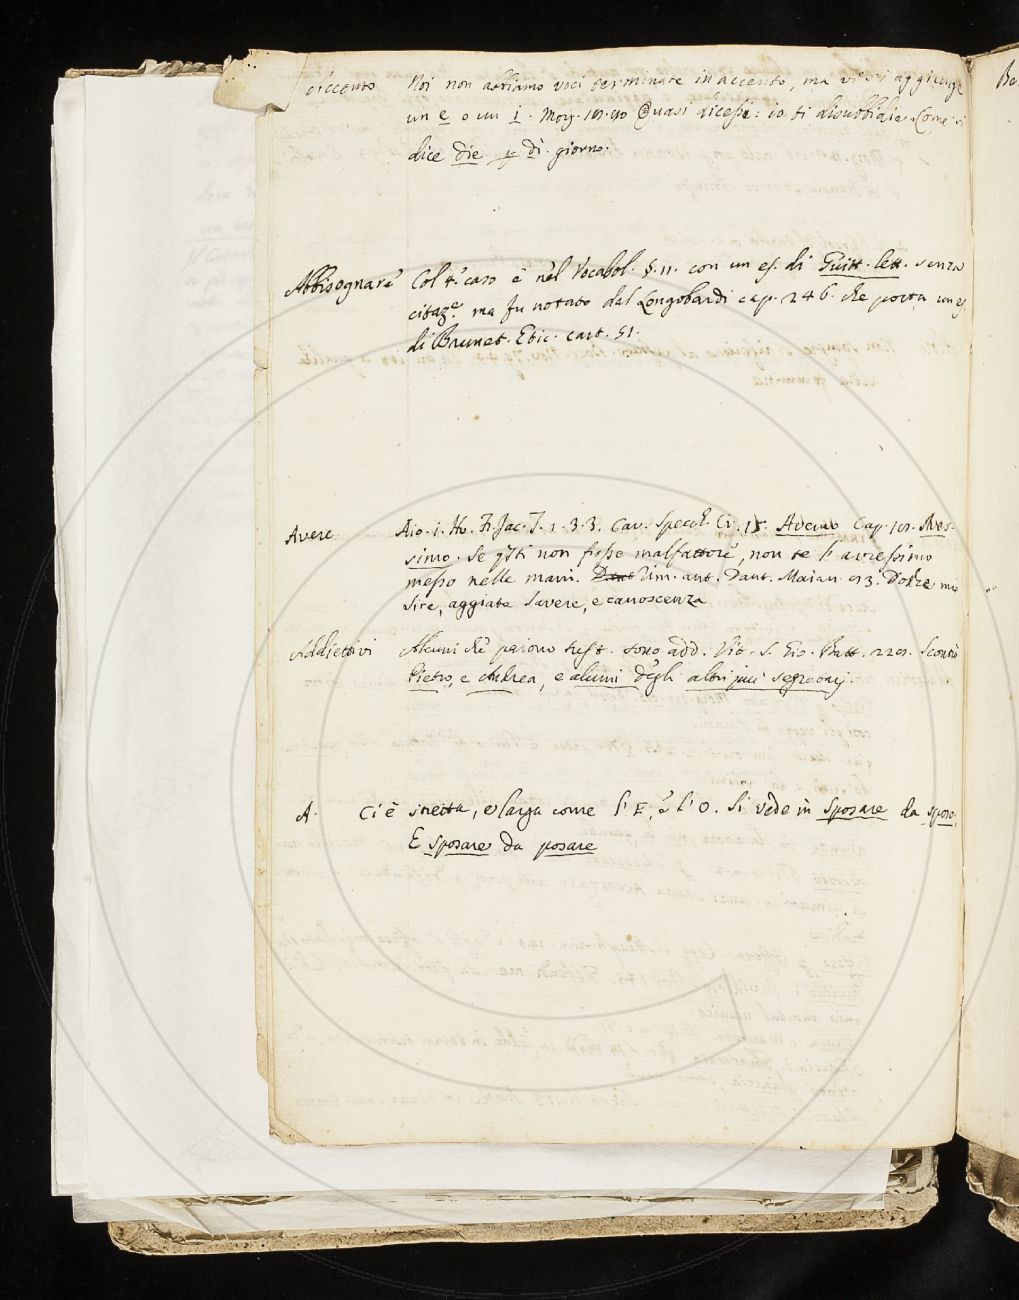 Accento Noi non abbiamo voci terminate in accento, ma vi si aggiunge
un e o un i. Morg. 19. 90 Quasi dicesse: io ti disubbidie. Come si
dice die p dì. giorno.
Abbisognare Col 4.° caso è nel Vocabol. §. 11. con un es. di Guitt. lett. senza
citaz.e ma fu notato dal Longobardi cap. 246. che porta un es.
di Brunet. Etic. cart. 51.
Avere Aio. i. Ho. Fr. Jac. T. 1. 3. 3. Cav. Specch. Cr. Avemo Cap. Aves-
simo. Se qsti non fosse malfattore, non te l'avressimo
messo nelle mani. Rim. ant. Dant. Maian. 93. Dolze mio
Sire, aggiate savere, e canoscenza
Addiettivi Alcuni che paiono sust. sono add. Vit. S. Gio. Batt. 229. Scontrò
Pietro, e Andrea, e alcuni degli altri più segreti.
A. Ci è stretta, e larga come l'E, e l'O. Si vede in Sposare da sposo,
E sposare da posare
Be